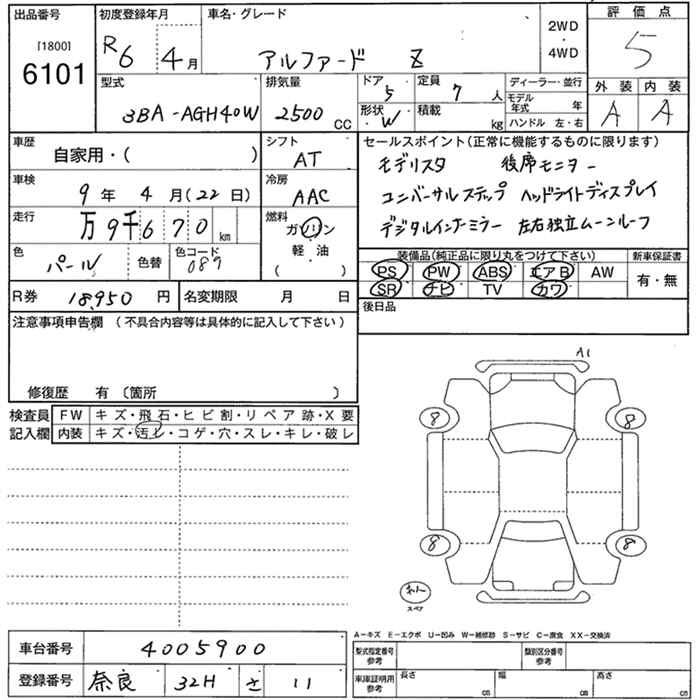 出品番号
[1800]
6101
初度登録年月
R6 4月
車名・グレード
アルファード Z
2WD
・
4WD
評価点
5
型式
3BA-AGH40W
排気量
2500 CC
ドア
5
定員
7 人
形状
W
積載
kg
ディーラー・並行
モデル年式 年
ハンドル 左・右
外装 内装
A A
車歴
自家用・( )
シフト
AT
車検
9年 4月(22日)
冷房
AAC
走行
万9千670 km
燃料
ガソリン
軽油
( )
色
パール
色替
色コード
089
セールスポイント(正常に機能するものに限ります)
モデリスタ 後席モニター
ユニバーサルステップ ヘッドライトディスプレイ
デジタルインナーミラー 左右独立ムーンルーフ
装備品(純正品に限り丸をつけて下さい)
PS PW ABS エアB AW
SR ナビ TV カワ
新車保証書
有・無
R券 18,950 円
名変期限 月 日
後日品
注意事項申告欄 (不具合内容等は具体的に記入して下さい)
修復歴 有 〔箇所 〕
検査員記入欄
FW キズ・飛石・ヒビ割・リペア跡・X要
内装 キズ・汚レ・コゲ・穴・スレ・キレ・破レ
A1
8 8
8 8
スペア
A−キズ E−エクボ U−凹み W−補修跡 S−サビ C−腐食 XX−交換済
車台番号 4005900
登録番号 奈良 32H さ 11
型式指定番号 参考
類別区分番号 参考
車庫証明用 参考
長さ cm
幅 cm
高さ cm